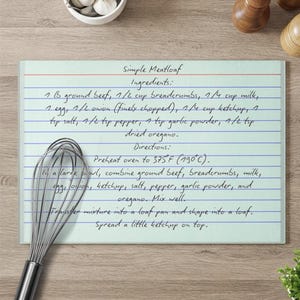 Simple Meatloaf
Ingredients:
1 lb ground beef, 1/2 cup breadcrumbs, 1/4 cup milk,
1 egg, 1/2 onion (finely chopped), 1/4 cup ketchup, 1
tsp salt, 1/2 tsp pepper, 1 tsp garlic powder, 1/2 tsp
dried oregano.
Directions:
Preheat oven to 375°F (190°C).
In a large bowl, combine ground beef, breadcrumbs, milk,
egg, onion, ketchup, salt, pepper, garlic powder, and
oregano. Mix well.
Transfer mixture into a loaf pan and shape into a loaf.
Spread a little ketchup on top.